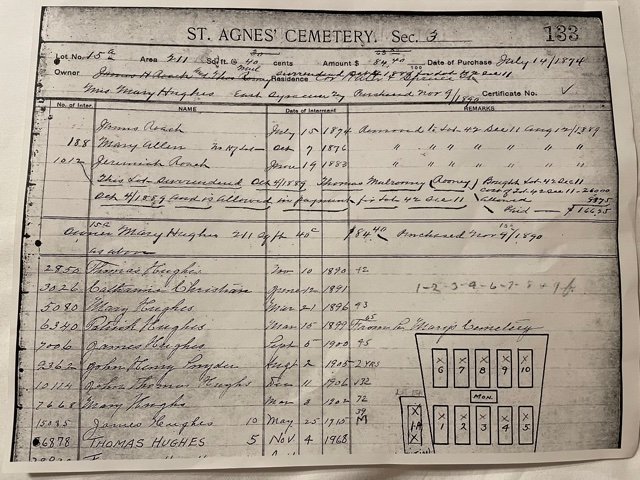 ST. AGNES' CEMETERY. Sec. 3 133
Lot No. 15a Area 211 Sq. ft. @ 40 cents Amount $ 84.40 Date of Purchase July 14/1874
Owner James H Roach Residence
Mrs Mary Hughes East Syracuse Ny Purchased Nov 9/1890 Certificate No.
No. of Inter. NAME Date of Interment REMARKS
James Roach July 15 1874 Removed to Lot 42 Sec 11 Aug 12/1889
188 Mary Allen Oct 7 1876 " " " " " " "
1012 Jeremiah Roach June 19 1888 " " " " " " "
This Lot Surrendered Oct 4/1889 Thomas Mulroony (Rooney) Bought Lot 42 Sec 11
Oct 4/1889 and is allowed in payment for Lot 42 Sec 11 allowed
Paid — $ 166.25
15a
Owner Mary Hughes 211 Sq ft 40c $84.40 Purchased Nov 9/1890
as above
2850 Thomas Hughes Nov 10 1890 42
3026 Catharine Christian June 12 1891
1-2-3-4-6-7-8+9
5080 Mary Hughes Mar 21 1896 43
6340 Patrick Hughes Mar 15 1899 65 From St Mary's Cemetery
7006 James Hughes Sept 5 1900 45
John Henry Snyder Augt 2 1905 2 YRS
10114 John Thomas Hughs Dec 11 1906 132
7668 Mary Hughs Mar 8 1902 72
15085 James Hughes 10 May 25 1915 39 M
36878 THOMAS HUGHES 5 NOV 4 1968
X 6 X 7 X 8 X 9 X 10
MON.
X 1-A X 1 X 2 X 3 X 4 X 5